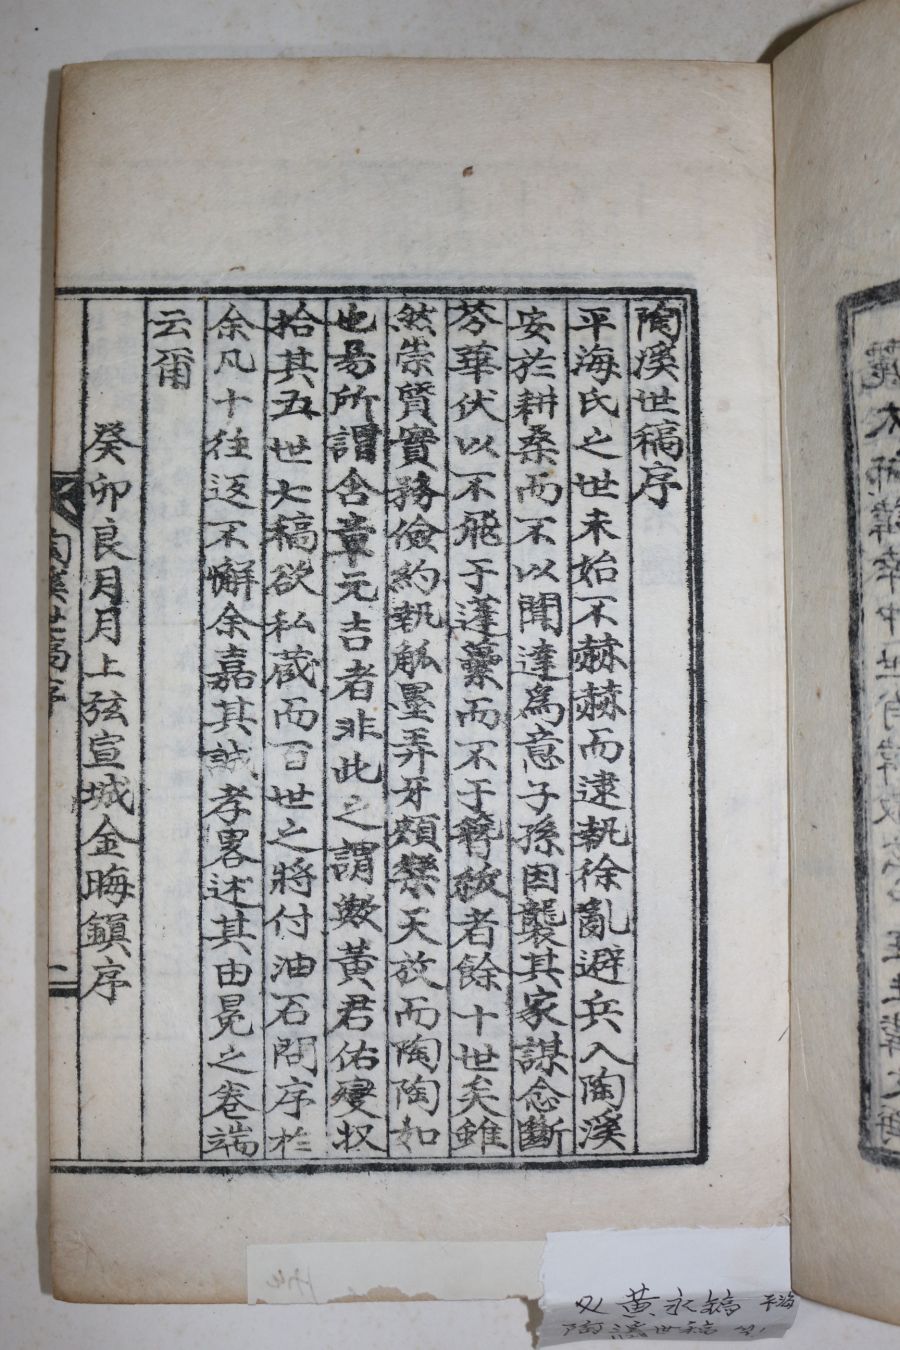 陶溪世稿序
平海氏之世未始不赫赫而逮執徐亂避兵入陶溪
安於耕桑而不以聞達爲意子孫因襲其家謀念斷
芬華伏以不飛于蓬藁而不于簪紱者餘十世矣雖
然崇質實務儉約執觚墨弄牙頰樂天放而陶陶如
也易所謂含章元吉者非此之謂歟黃君佑燮収
拾其五世七稿欲私藏而百世之將付油石問序於
余凡十往返不懈余嘉其誠孝畧述其由冕之卷端
云爾
癸卯良月月上弦宣城金晦鎭序
陶溪世稿序
二
黃永鎬 平海
陶溪世稿